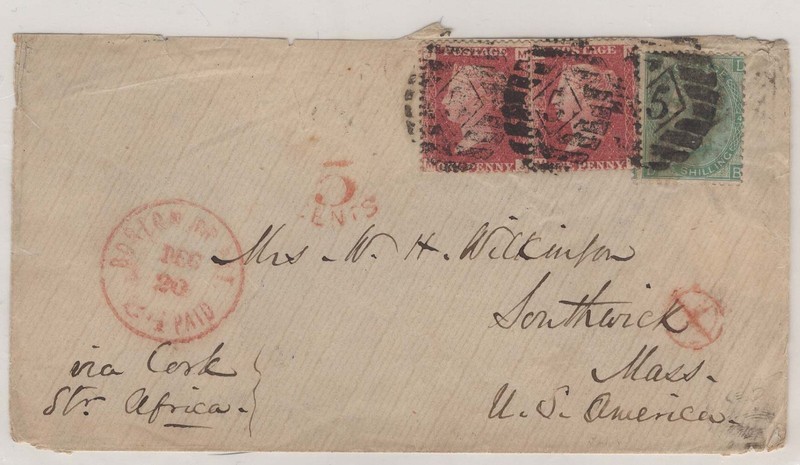 POSTAGE
POSTAGE
ONE PENNY
PENNY
5
SHILLING
5
CENTS
BOSTON BR. PKT
DEC
20
24 PAID
Mrs. W. H. Wilkinson
Southwick
Mass.
U. S. America.
via Cork
Str. Africa.